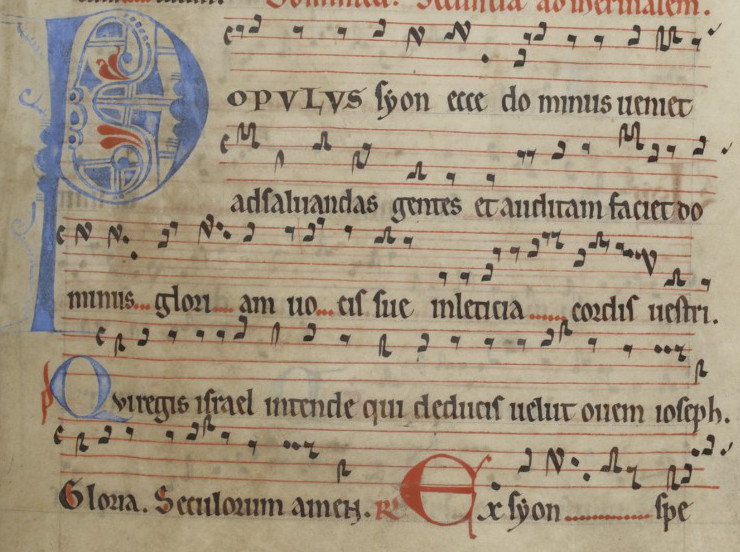 Dominica. Secunda ad iherusalem.
POPVLVS syon ecce dominus ueniet
adsaluandas gentes et auditam faciet do
minus gloriam uocis sue inleticia cordis uestri.
Qui regis israel intende qui deducis uelut ouem ioseph.
Gloria. Seculorum amen. R Ex syon spe